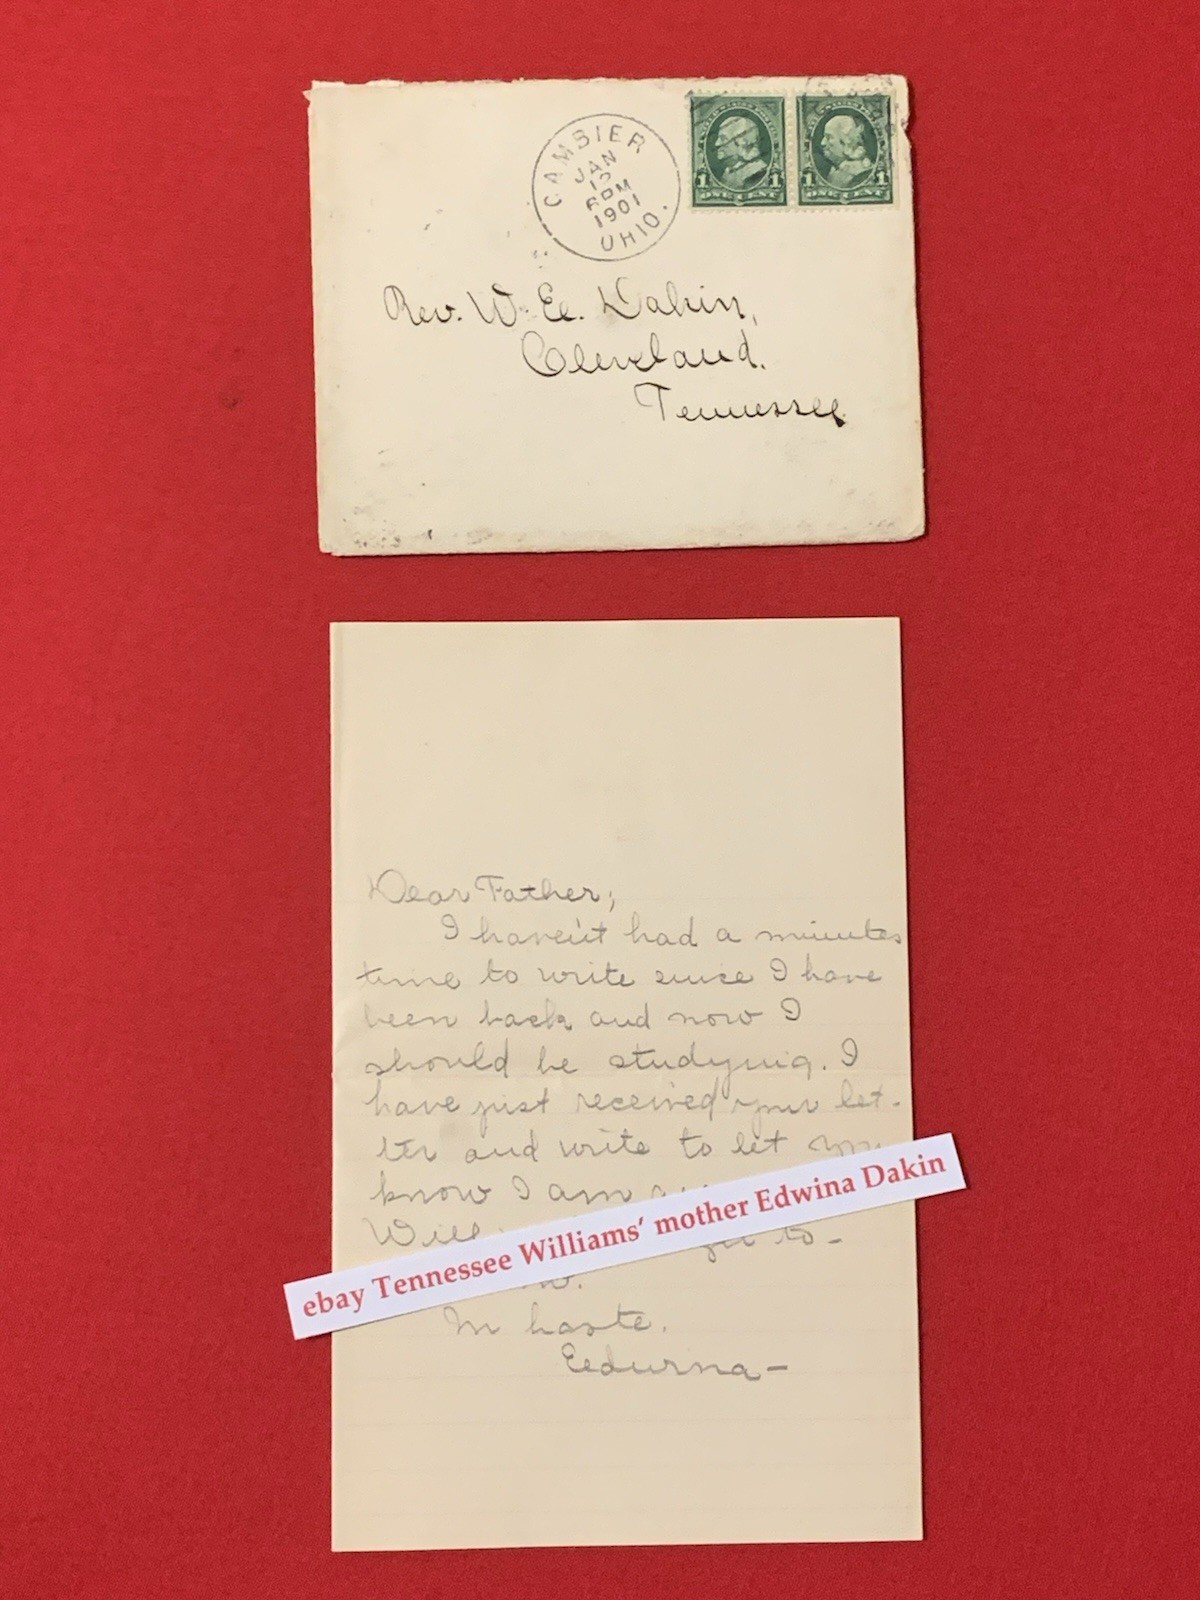 GAMBIER
JAN
6 PM
1901
OHIO.
1 1
ONE CENT
1 1
ONE CENT
Rev. W. E. Dakin,
Cleveland.
Tennessee
Dear Father;
I haven't had a minutes
time to write since I have
been back and now I
should be studying. I
have just received your let-
ter and write to let you
know I am
Will to-
ebay Tennessee Williams' mother Edwina Dakin
In haste.
Edwina-